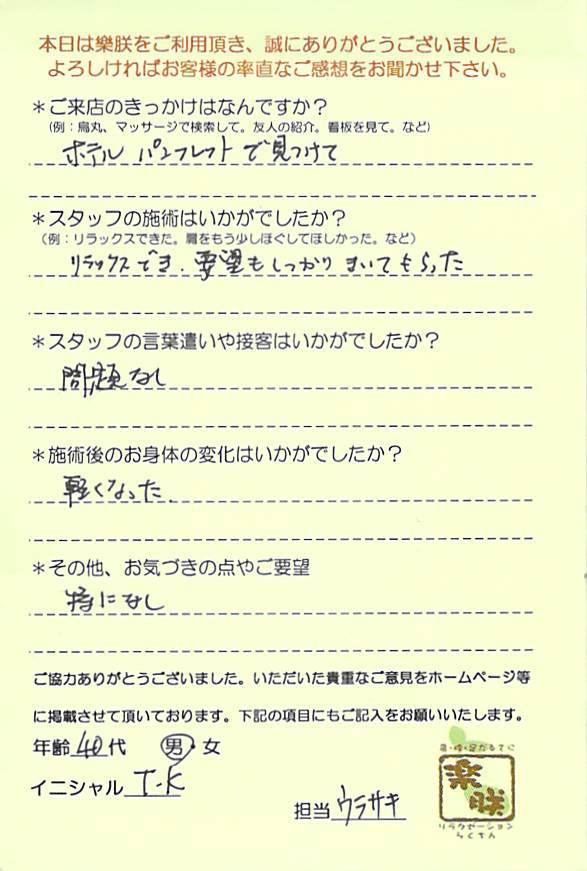 本日は樂朕をご利用頂き、誠にありがとうございました。
よろしければお客様の率直なご感想をお聞かせ下さい。
＊ご来店のきっかけはなんですか？
（例：烏丸、マッサージで検索して。友人の紹介。看板を見て。など）
ホテル パンフレットで見つけて
＊スタッフの施術はいかがでしたか？
（例：リラックスできた。肩をもう少しほぐしてほしかった。など）
リラックスでき、要望もしっかりきいてもらった
＊スタッフの言葉遣いや接客はいかがでしたか？
問題なし
＊施術後のお身体の変化はいかがでしたか？
軽くなった。
＊その他、お気づきの点やご要望
特になし
ご協力ありがとうございました。いただいた貴重なご意見をホームページ等
に掲載させて頂いております。下記の項目にもご記入をお願いいたします。
年齢 40代 男・女
イニシャル T-K
担当 ウラサキ
楽朕
リラクゼーション
らくちん